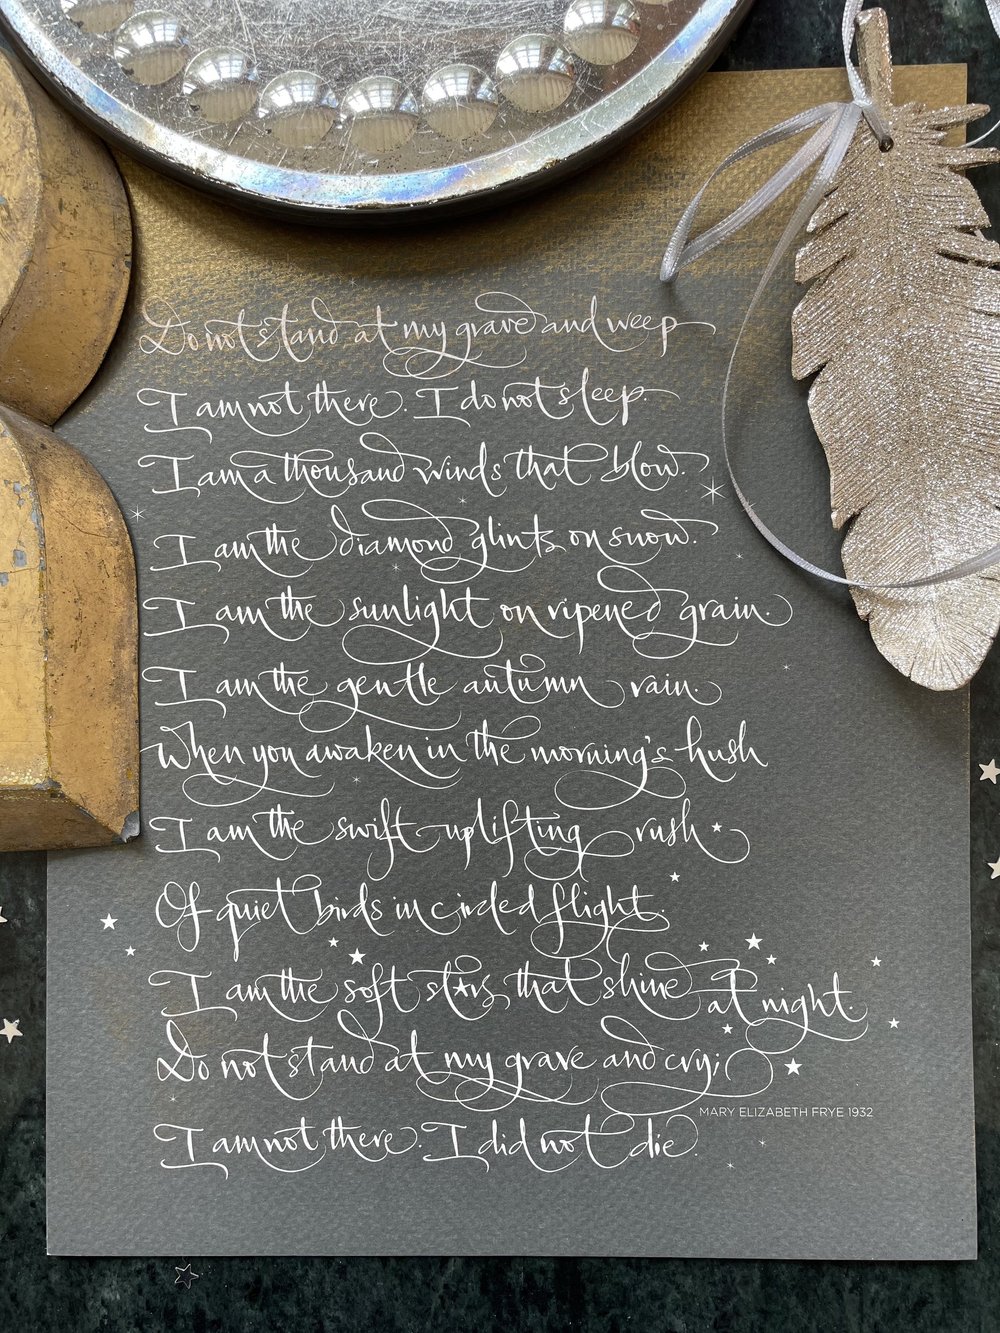 Do not stand at my grave and weep
I am not there. I do not sleep.
I am a thousand winds that blow.
I am the diamond glints on snow.
I am the sunlight on ripened grain.
I am the gentle autumn rain.
When you awaken in the morning's hush
I am the swift uplifting rush
Of quiet birds in circled flight.
I am the soft stars that shine at night.
Do not stand at my grave and cry;
MARY ELIZABETH FRYE 1932
I am not there. I did not die.